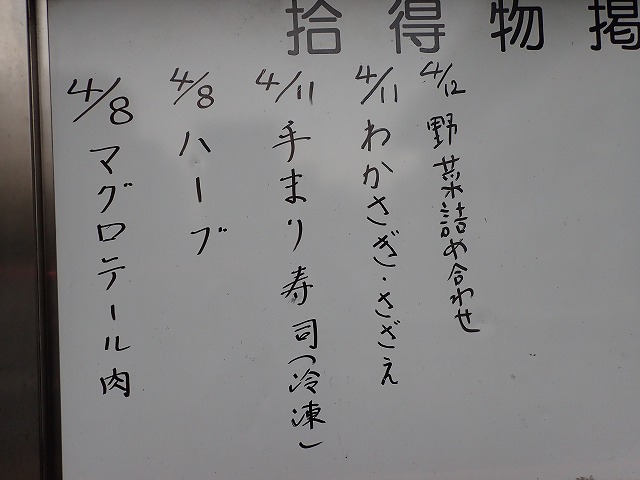 拾得物掲
4/12 野菜詰め合わせ
4/11 わかさぎ・さざえ
4/11 手まり寿司(冷凍)
4/8 ハーブ
4/8 マグロテール肉